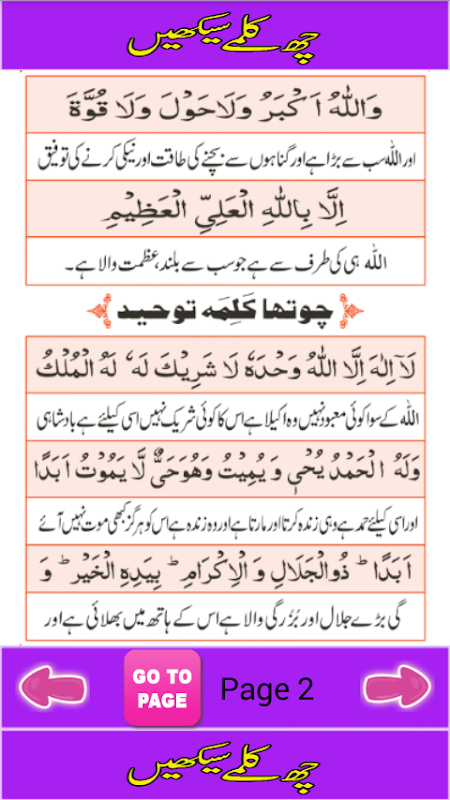 چھ کلمے سیکھیں
وَاللّٰهُ اَكْبَرُ وَلَا حَوْلَ وَلَا قُوَّةَ
اور اللہ سب سے بڑا ہے اور گناہوں سے بچنے کی طاقت اور نیکی کرنے کی توفیق
اِلَّا بِاللّٰهِ الْعَلِيِّ الْعَظِيْمِ
اللہ ہی کی طرف سے ہے جو سب سے بلند، عظمت والا ہے۔
چوتھا کَلِمَه توحید
لَآ اِلٰهَ اِلَّا اللّٰهُ وَحْدَهٗ لَا شَرِيْكَ لَهٗ لَهُ الْمُلْكُ
اللہ کے سوا کوئی معبود نہیں وہ اکیلا ہے اس کا کوئی شریک نہیں اسی کیلئے ہے بادشاہی
وَلَهُ الْحَمْدُ يُحْيٖ وَ يُمِيْتُ وَهُوَ حَيٌّ لَّا يَمُوْتُ اَبَدًا
اور اسی کیلئے حمد ہے وہی زندہ کرتا اور مارتا ہے اور وہ زندہ ہے اس کو ہرگز کبھی موت نہیں آئے
اَبَدًا ؕ ذُو الْجَلَالِ وَ الْاِكْرَامِ ؕ بِيَدِهِ الْخَيْرُ ؕ وَ
گی بڑے جلال اور بُزُرگی والا ہے اس کے ہاتھ میں بھلائی ہے اور
GO TO
PAGE
Page 2
چھ کلمے سیکھیں